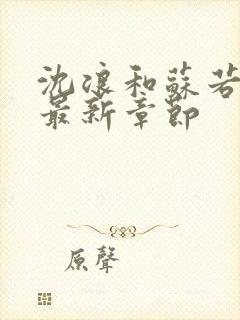 沈浪和蘇若
最新章節
原聲